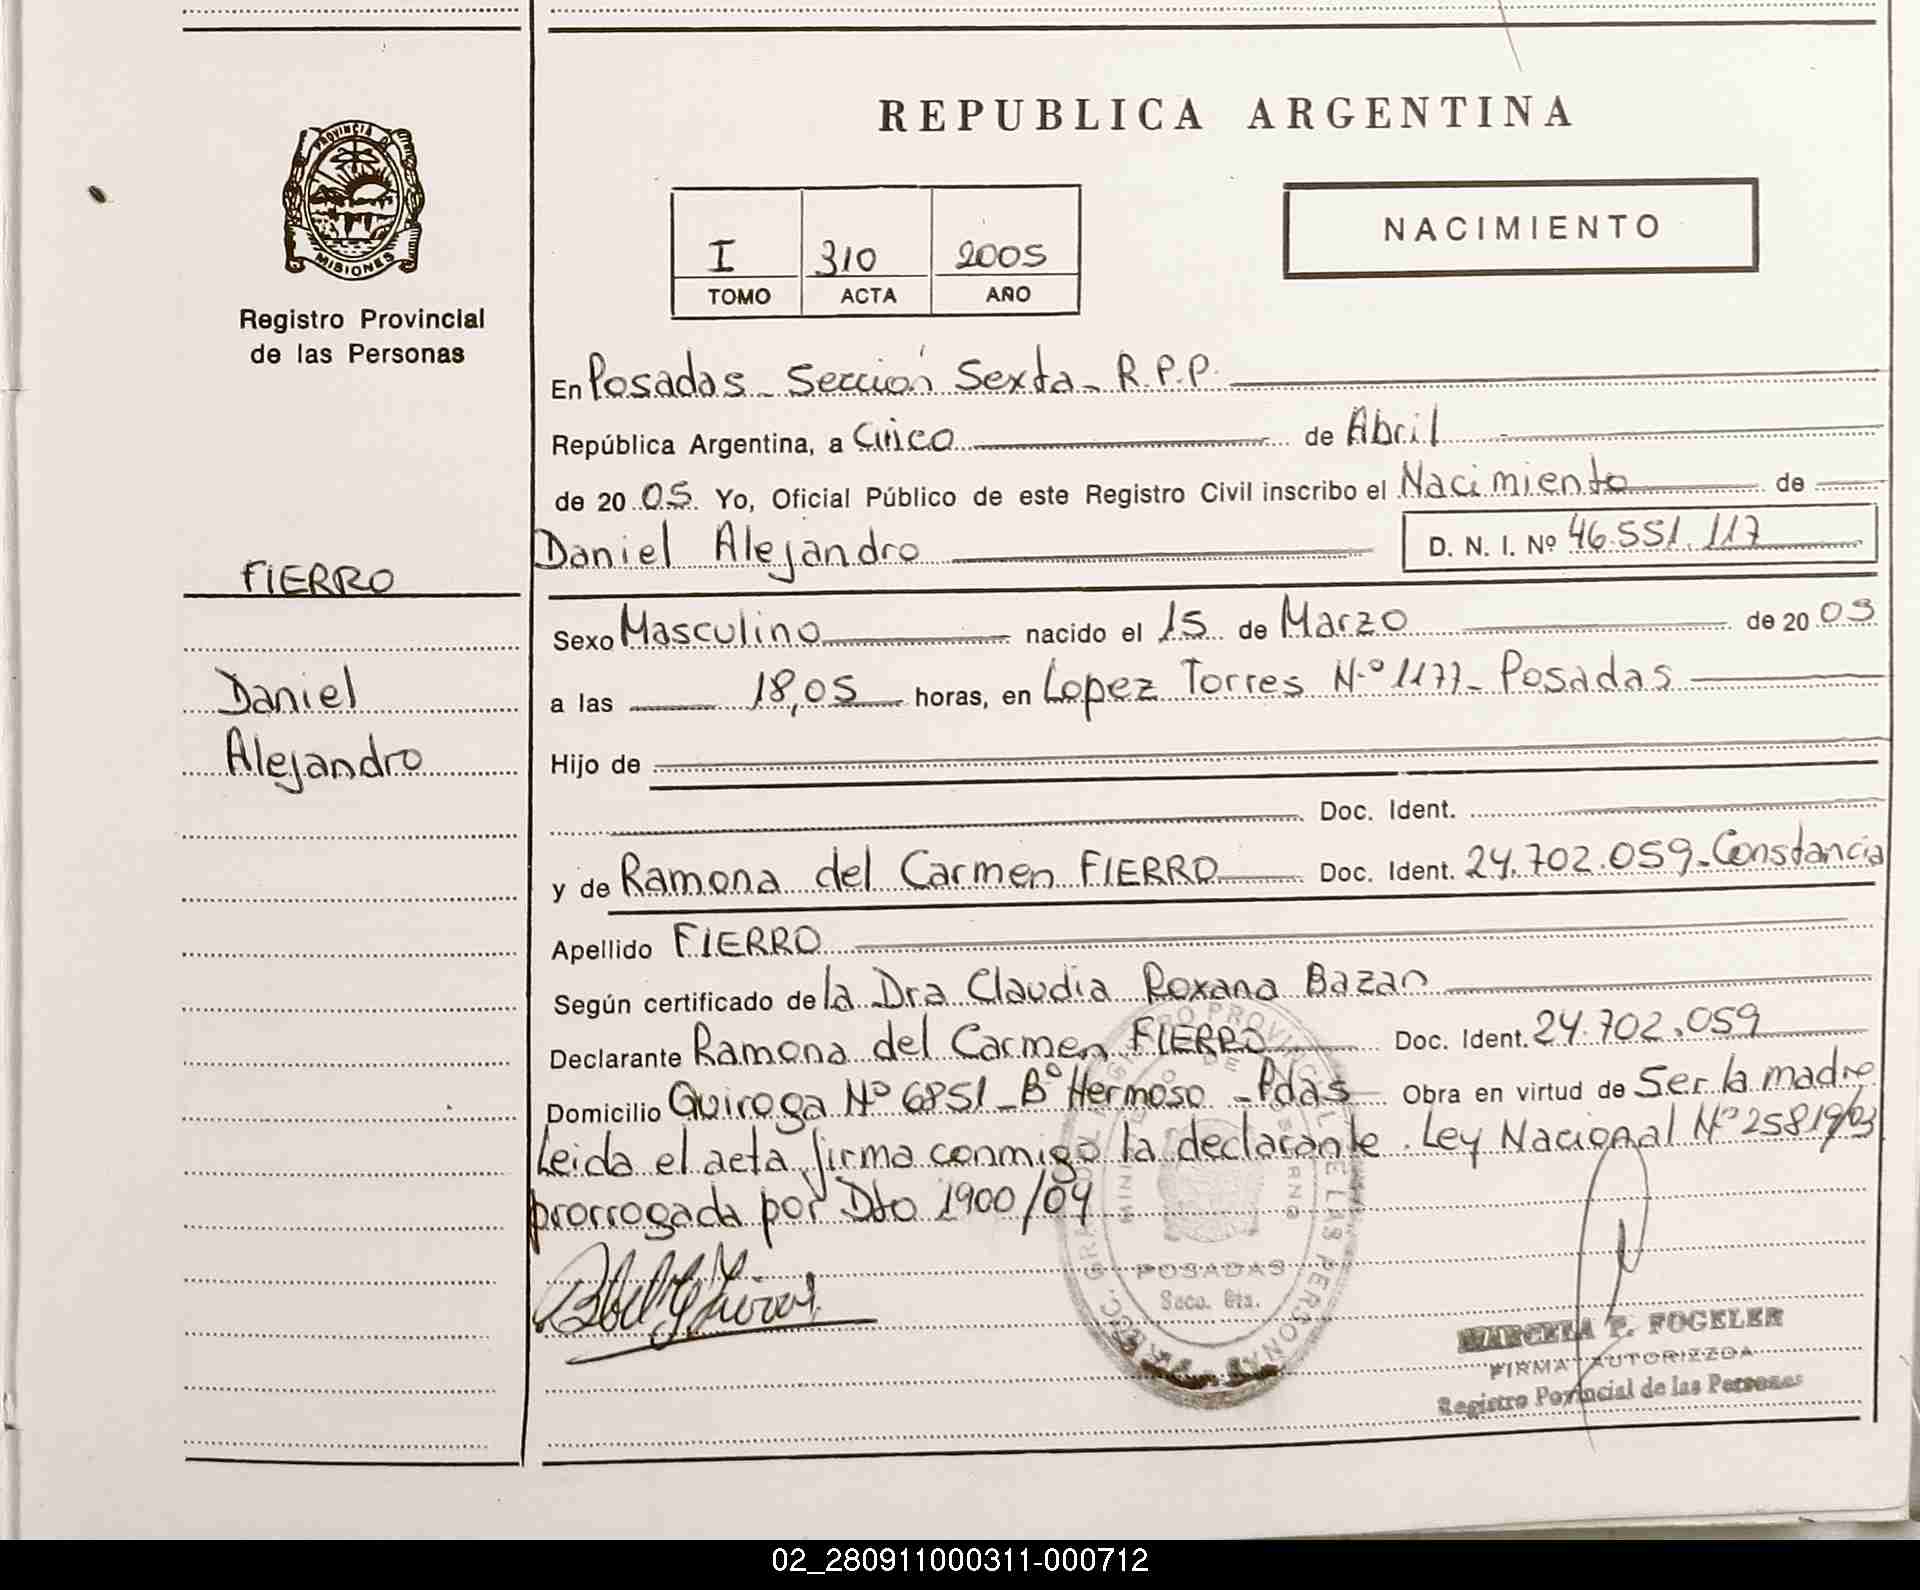 REPUBLICA ARGENTINA
PROVINCIA D
MISIONES
Registro Provincial
de las Personas
I 310 2005
TOMO ACTA AÑO
NACIMIENTO
En Posadas - Sección Sexta - R.P.P.
República Argentina, a Cinco de Abril
de 20 05. Yo, Oficial Público de este Registro Civil inscribo el Nacimiento de
Daniel Alejandro D. N. I. Nº 46.551.117
FIERRO
Daniel
Alejandro
Sexo Masculino nacido el 15 de Marzo de 20 05
a las 18,05 horas, en Lopez Torres N.º 1177 - Posadas
Hijo de
Doc. Ident.
y de Ramona del Carmen FIERRO Doc. Ident. 24.702.059 - Constancia
Apellido FIERRO
Según certificado de la Dra Claudia Roxana Bazan
Declarante Ramona del Carmen FIERRO Doc. Ident. 24.702.059
Domicilio Quiroga Nº 6851 - Bº Hermoso - Pdas Obra en virtud de Ser la madre
Leida el acta, firma conmigo la declarante. Ley Nacional Nº 25819/03
prorrogada por Dto 1900/04
POSADAS
Secc. 6ta.
MARCELA P. FOGELER
FIRMA AUTORIZZDA
Registro Porincial de las Personas
02_280911000311-000712